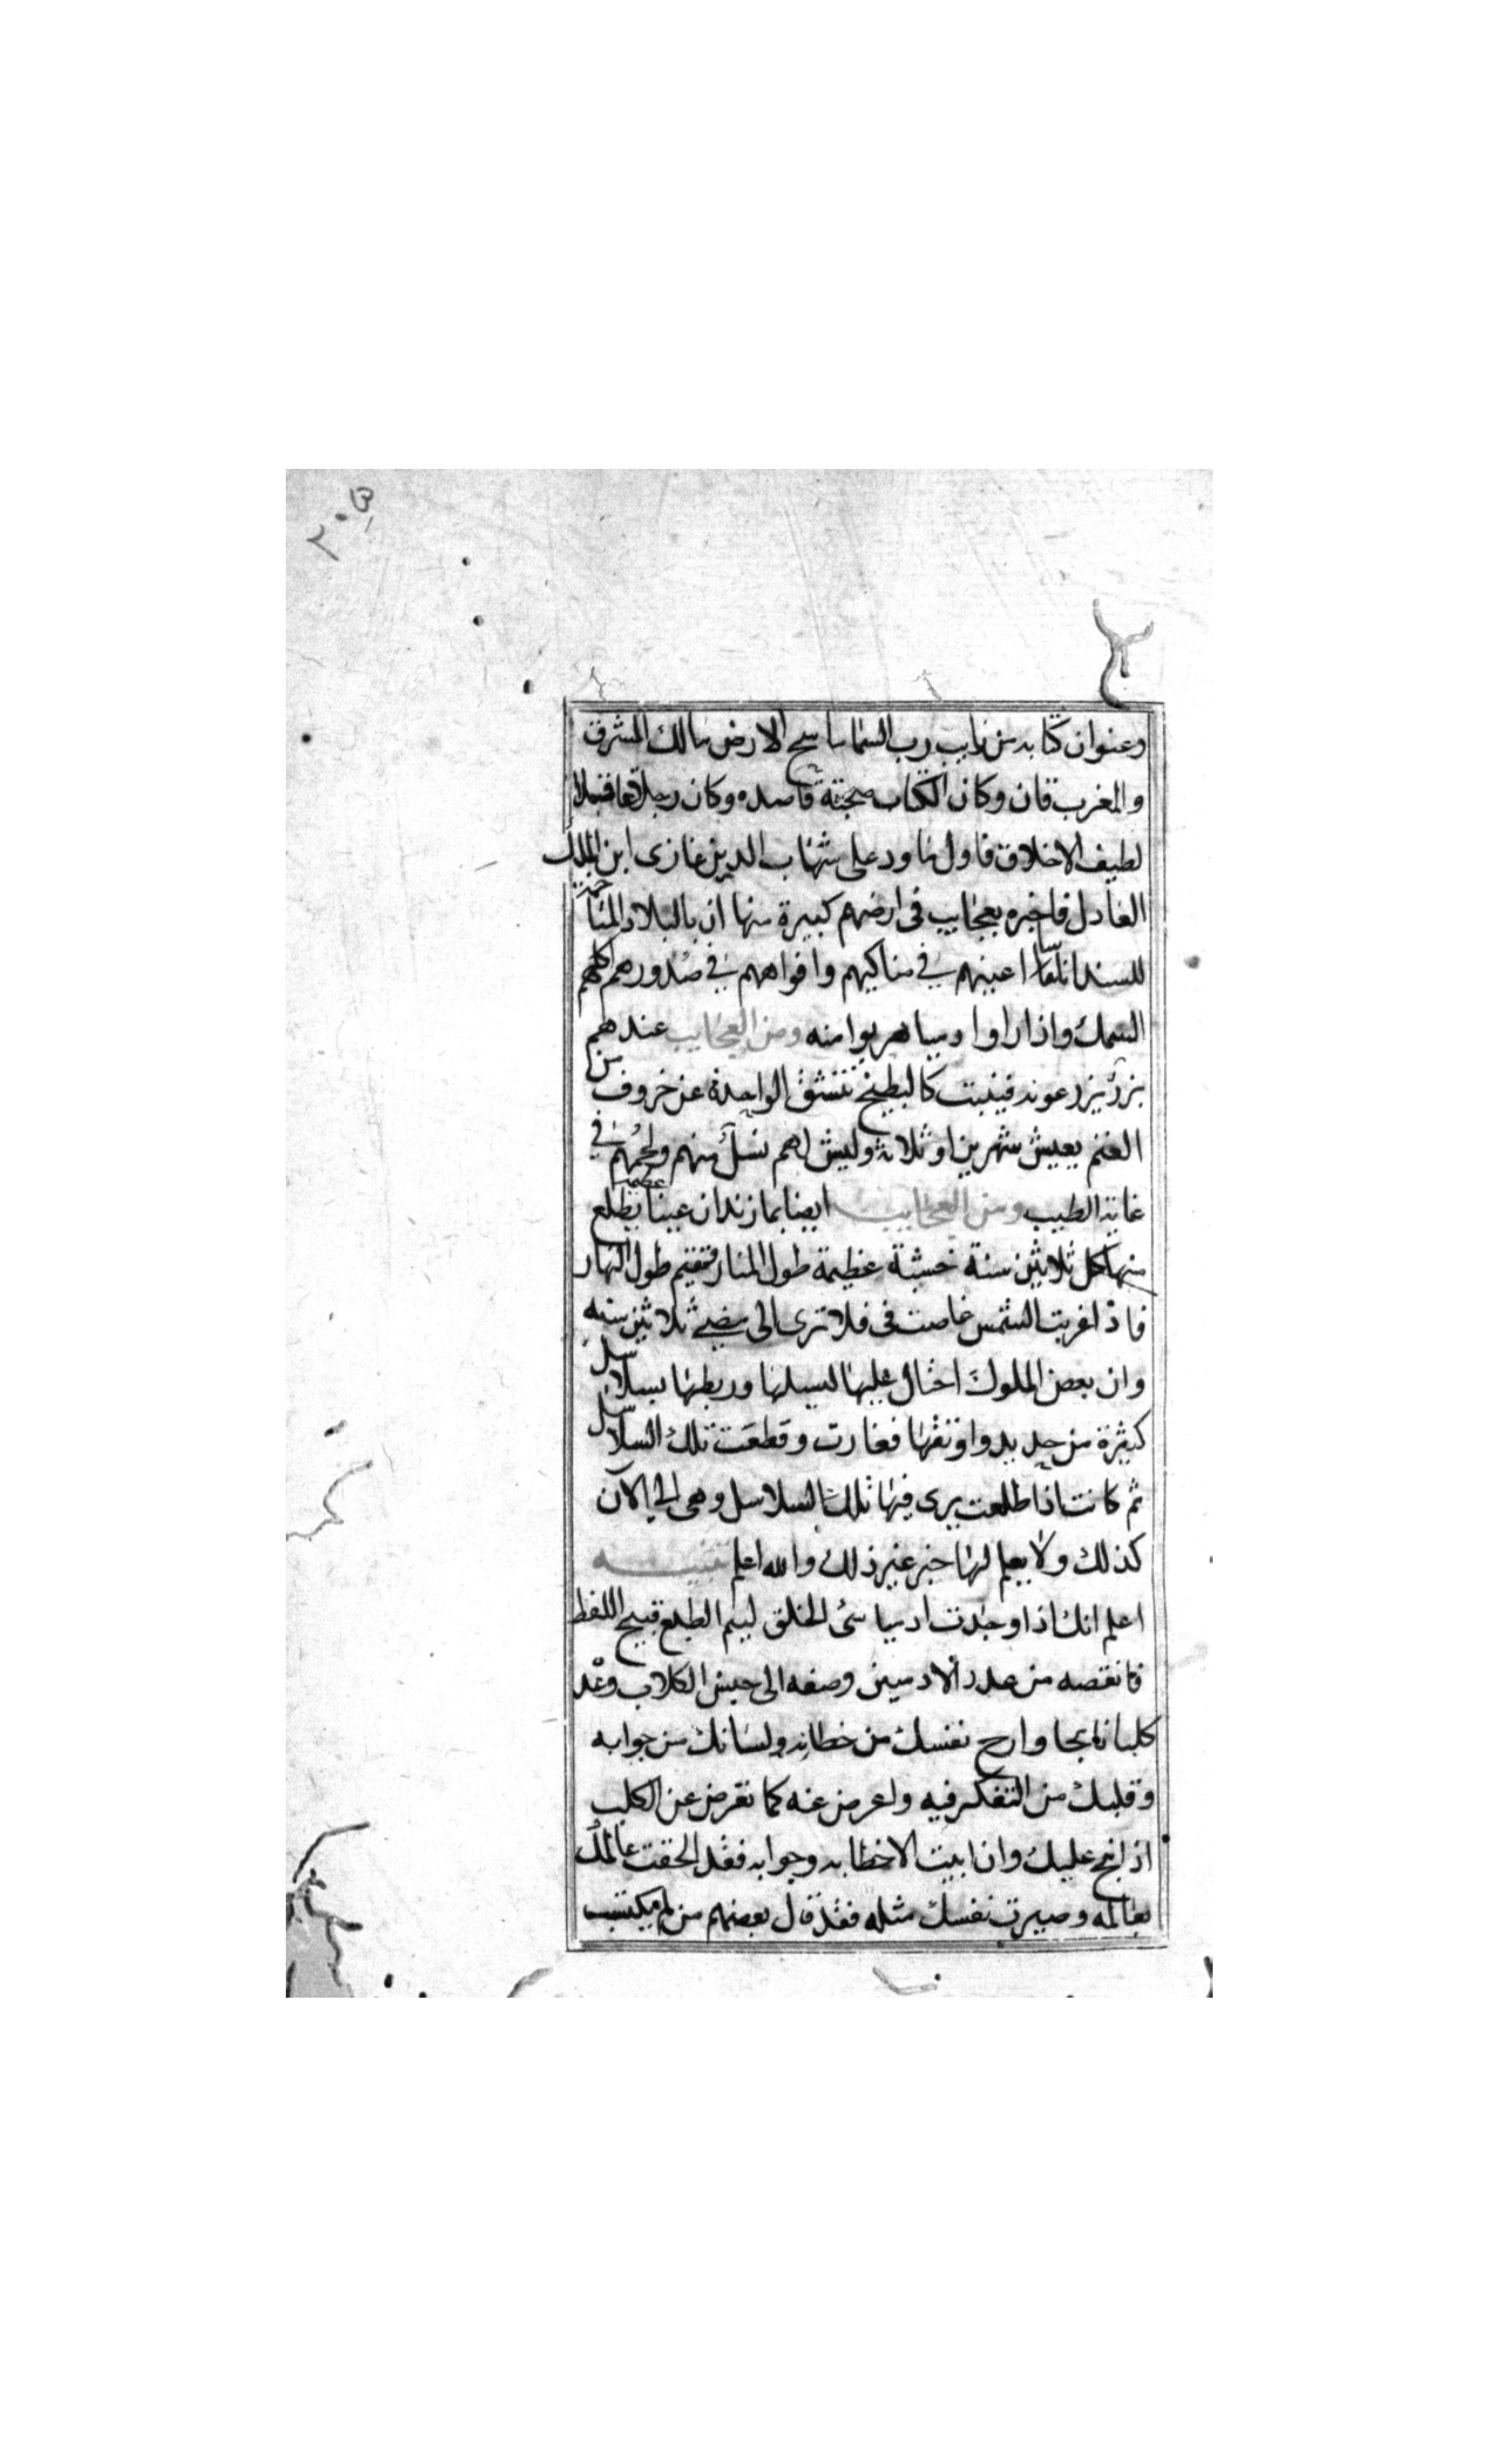 وعنوان كتابه من نايب رب السما ماسح الارض مالك المشرق
والمغرب قان وكان الكتاب صحبة قاصده وكان رجلا عاقلا
لطيف الاخلاق فاول ما ورد على شهاب الدين غازى ابن الملك
العادل فاخبره بعجايب فى ارضهم كبيرة منها ان بالبلاد المتاخمة
للسند اناسا اعينهم في مناكبهم وافواههم في صدورهم اكلهم
السمك واذا راوا ادميا هربوا منه ومن العجايب عندهم
بزر يزرعونه فينبت كالبطيخ تنشق الواحدة عن خروف من
الغنم يعيش شهرين او ثلاثة وليس لهم نسل منهم ولحمهم في
غاية الطيب ومن العجايب ايضا بمازندان عينا عظيمة يطلع
منها كل ثلاثين سنة خشبة عظيمة طول المنار فتقيم طول النهار
فاذا غربت الشمس غاصت فى فلا ترى الى مضي ثلاثين سنه
وان بعض الملوك احتال عليها ليمسكها وربطها بسلاسل
كثيرة من حديد واوثقها فغارت وقطعت تلك السلاسل
ثم كانت اذا طلعت يرى فيها تلك السلاسل وهى الى الآن
كذلك ولا يعلم لها خبر غير ذلك والله اعلم تنبيه
اعلم انك اذا وجدت ادميا سئ الخلق ليم الطبع قبيح اللفظ
فانقصه من عدد الادميين وضفه الى جنس الكلاب وعده
كلبا نابحا وارح نفسك من خطابه ولسانك من جوابه
وقلبك من التفكر فيه واعرض عنه كما تعرض عن الكلب
اذا نبح عليك وان ابيت الا خطابه وجوابه فقد الحقت عالمك
بعالمه وصيرت نفسك مثله فقد قال بعضهم من لم يكتسب